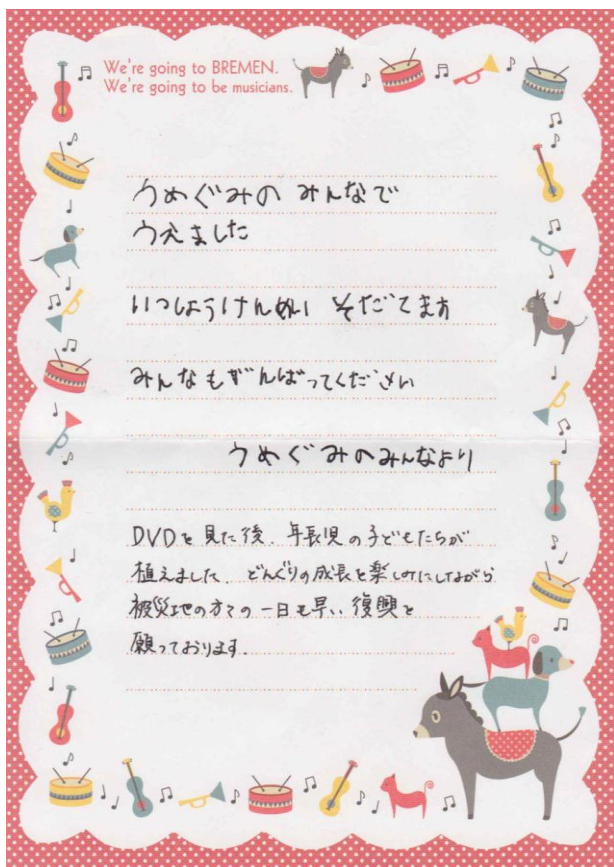 We're going to BREMEN.
We're going to be musicians.
うめぐみの みんなで
うえました
いっしょうけんめい そだててます
みんなもがんばってください
うめぐみのみんなより
DVDを見た後、年長児の子どもたちが
植えました。どんぐりの成長を楽しみにしながら
被災地の方々の一日も早い復興を
願っております。